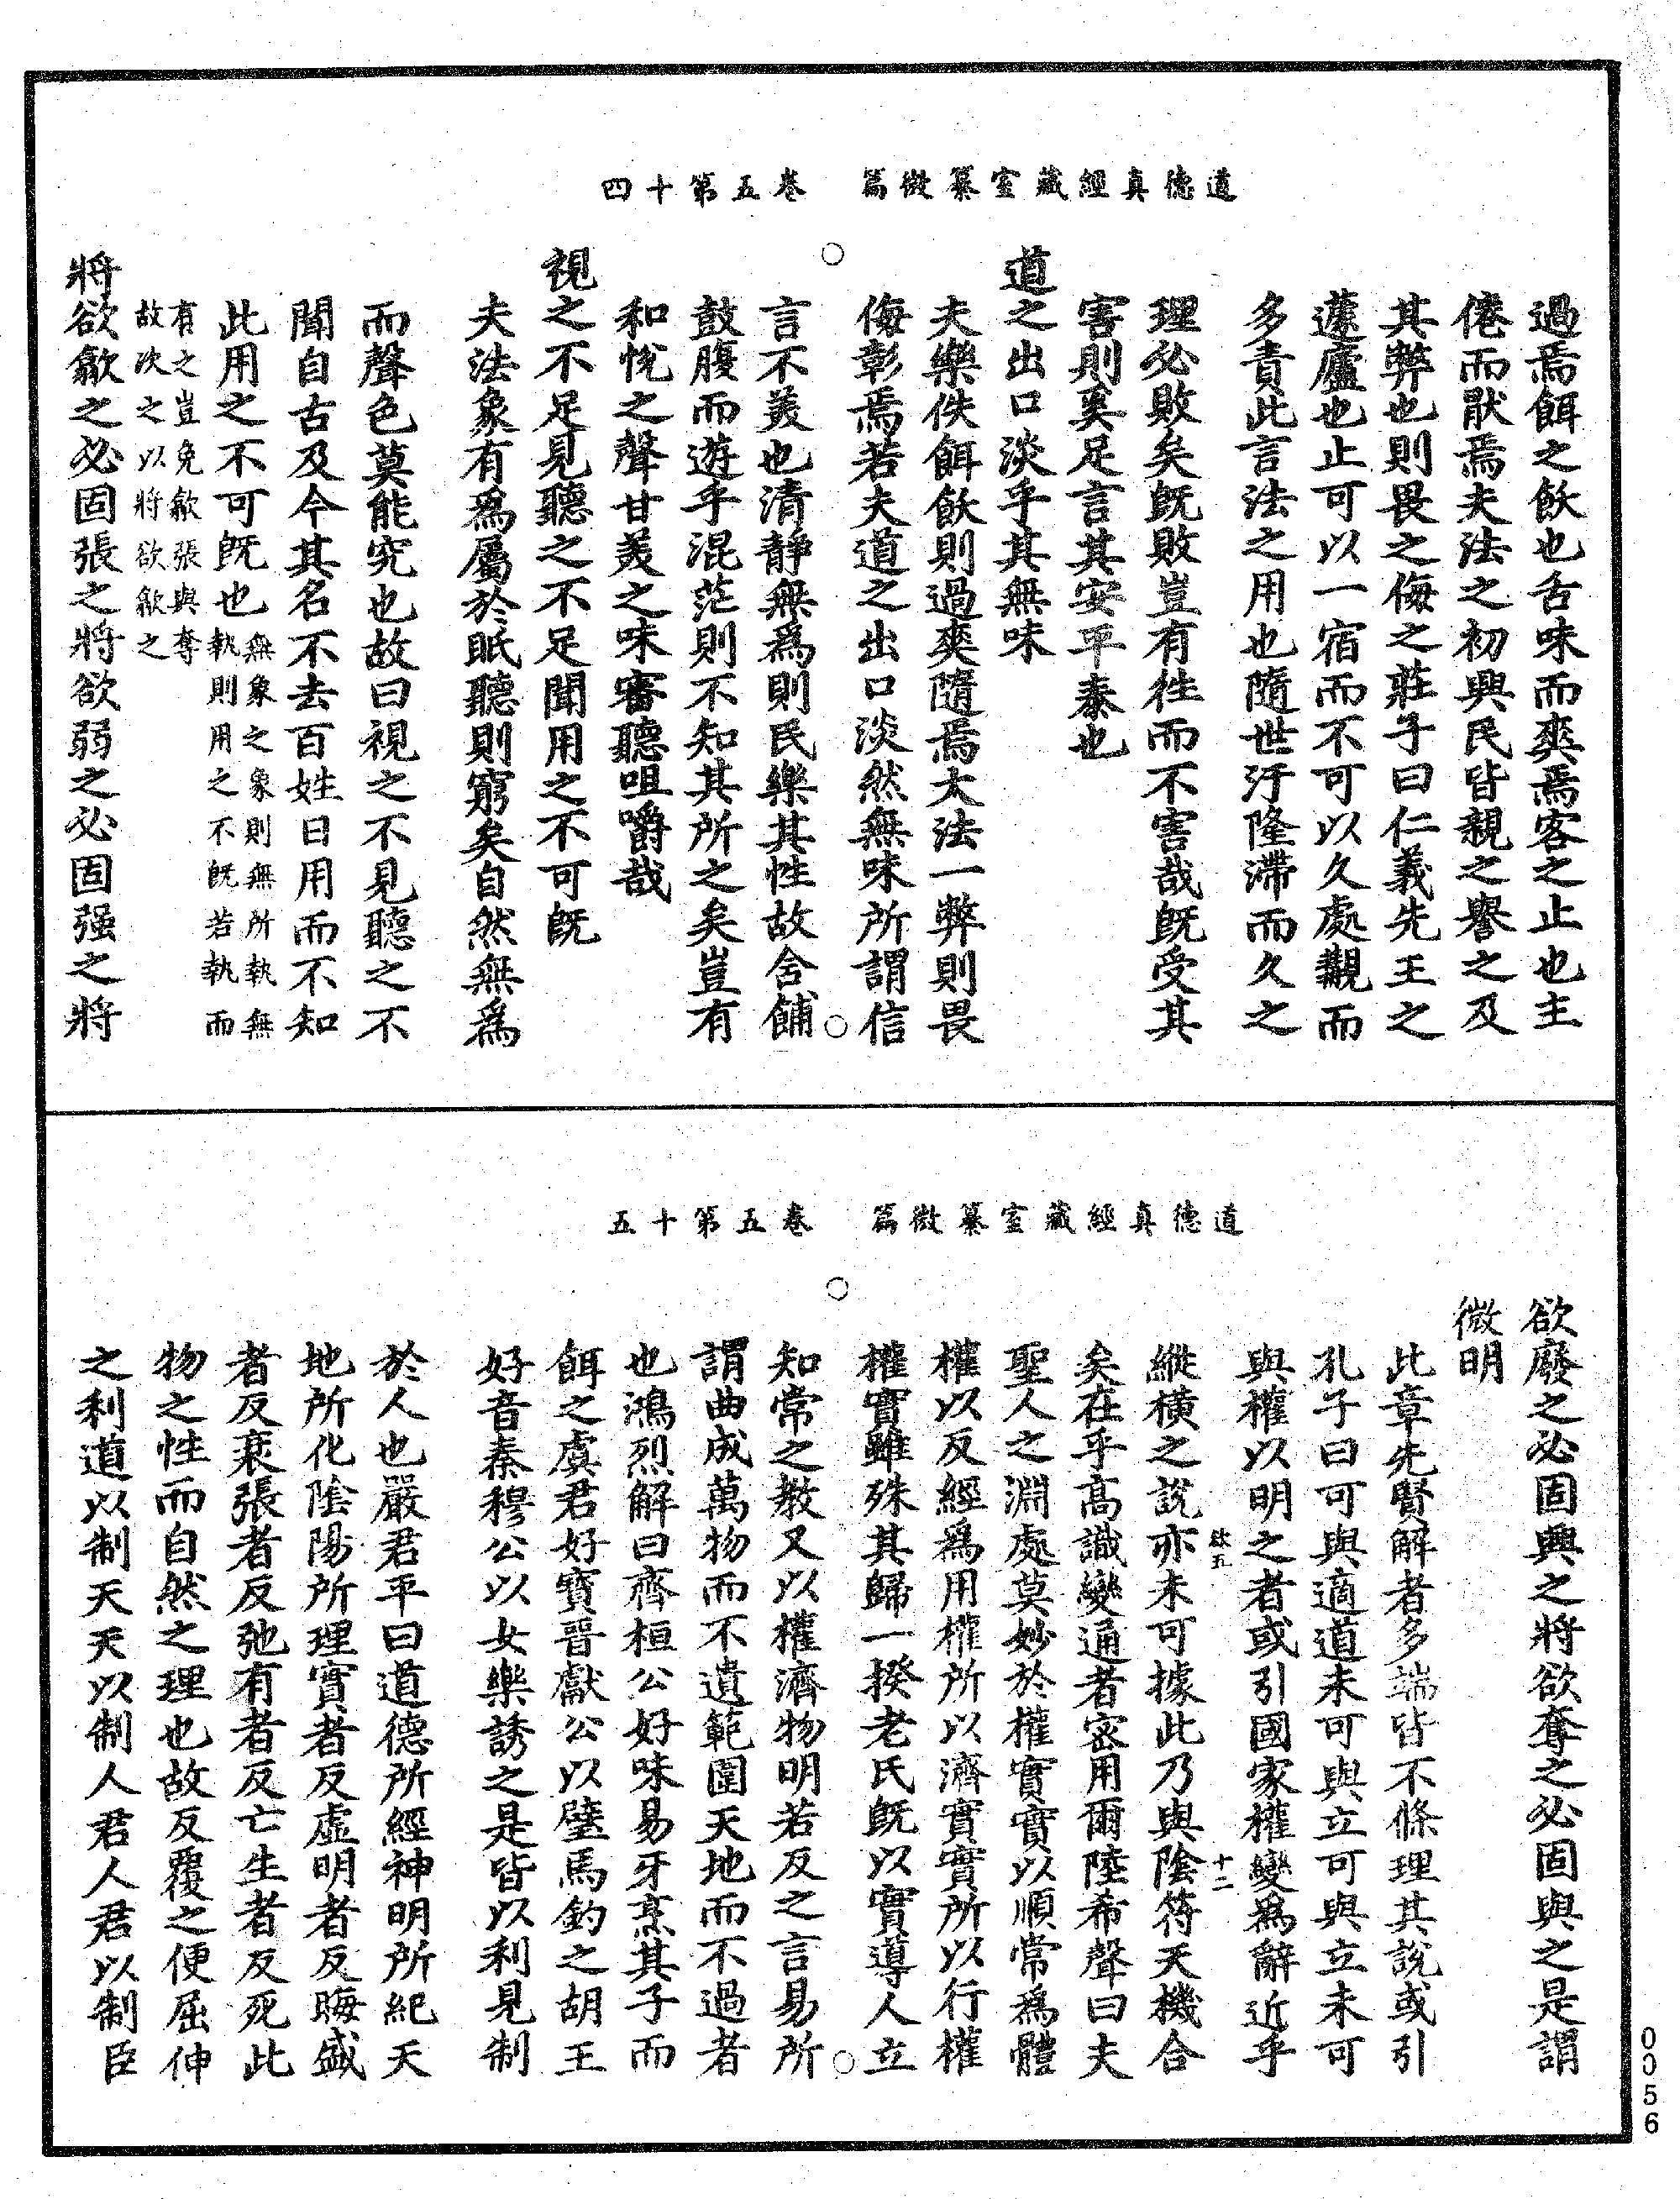 道德真經藏室纂微篇　卷五第十四
過焉餌之飫也舌味而爽焉客之止也主
倦而猒焉夫法之初興民皆親之譽之及
其弊也則畏之侮之莊子曰仁義先王之
蘧廬也止可以一宿而不可以久處覯而
多責此言法之用也隨世汙隆滯而久之
理必敗矣旣敗豈有徃而不害哉旣受其
害則奚足言其安平泰也
道之出口淡乎其無味
夫樂佚餌飫則過爽隨焉大法一弊則畏
侮彰焉若夫道之出口淡然無味所謂信
言不羙也清靜無爲則民樂其性故含餔
鼓腹而遊乎混茫則不知其所之矣豈有
和悅之聲甘羙之味審聽咀嚼哉
視之不足見聽之不足聞用之不可旣
夫法象有爲屬於眂聽則窮矣自然無爲
而聲色莫能究也故曰視之不見聽之不
聞自古及今其名不去百姓日用而不知
此用之不可旣也無象之象則無所執無
執則用之不旣若執而
有之豈免歙張與奪
故次之以將欲歙之
將欲歙之必固張之將欲弱之必固强之將
道德真經藏室纂微篇　卷五第十五
欲廢之必固興之將欲奪之必固與之是謂
微明
此章先賢解者多端皆不條理其說或引
孔子曰可與適道未可與立可與立未可
與權以明之者或引國家權變爲辭近乎
縱橫之說亦未可據此乃與陰符天機合
矣在乎高識變通者密用爾陸希聲曰夫
聖人之淵處莫妙於權實實以順常爲體
權以反經爲用權所以濟實實所以行權
權實雖殊其歸一揆老氏旣以實導人立
知常之教又以權濟物明若反之言易所
謂曲成萬物而不遺範圍天地而不過者
也鴻烈解曰齊桓公好味易牙烹其子而
餌之虞君好寶晉獻公以璧馬釣之胡王
好音秦穆公以女樂誘之是皆以利見制
於人也嚴君平曰道德所經神明所紀天
地所化陰陽所理實者反虛明者反晦盛
者反衰張者反弛有者反亡生者反死此
物之性而自然之理也故反覆之便屈伸
之利道以制天天以制人君人君以制臣
十二
0056